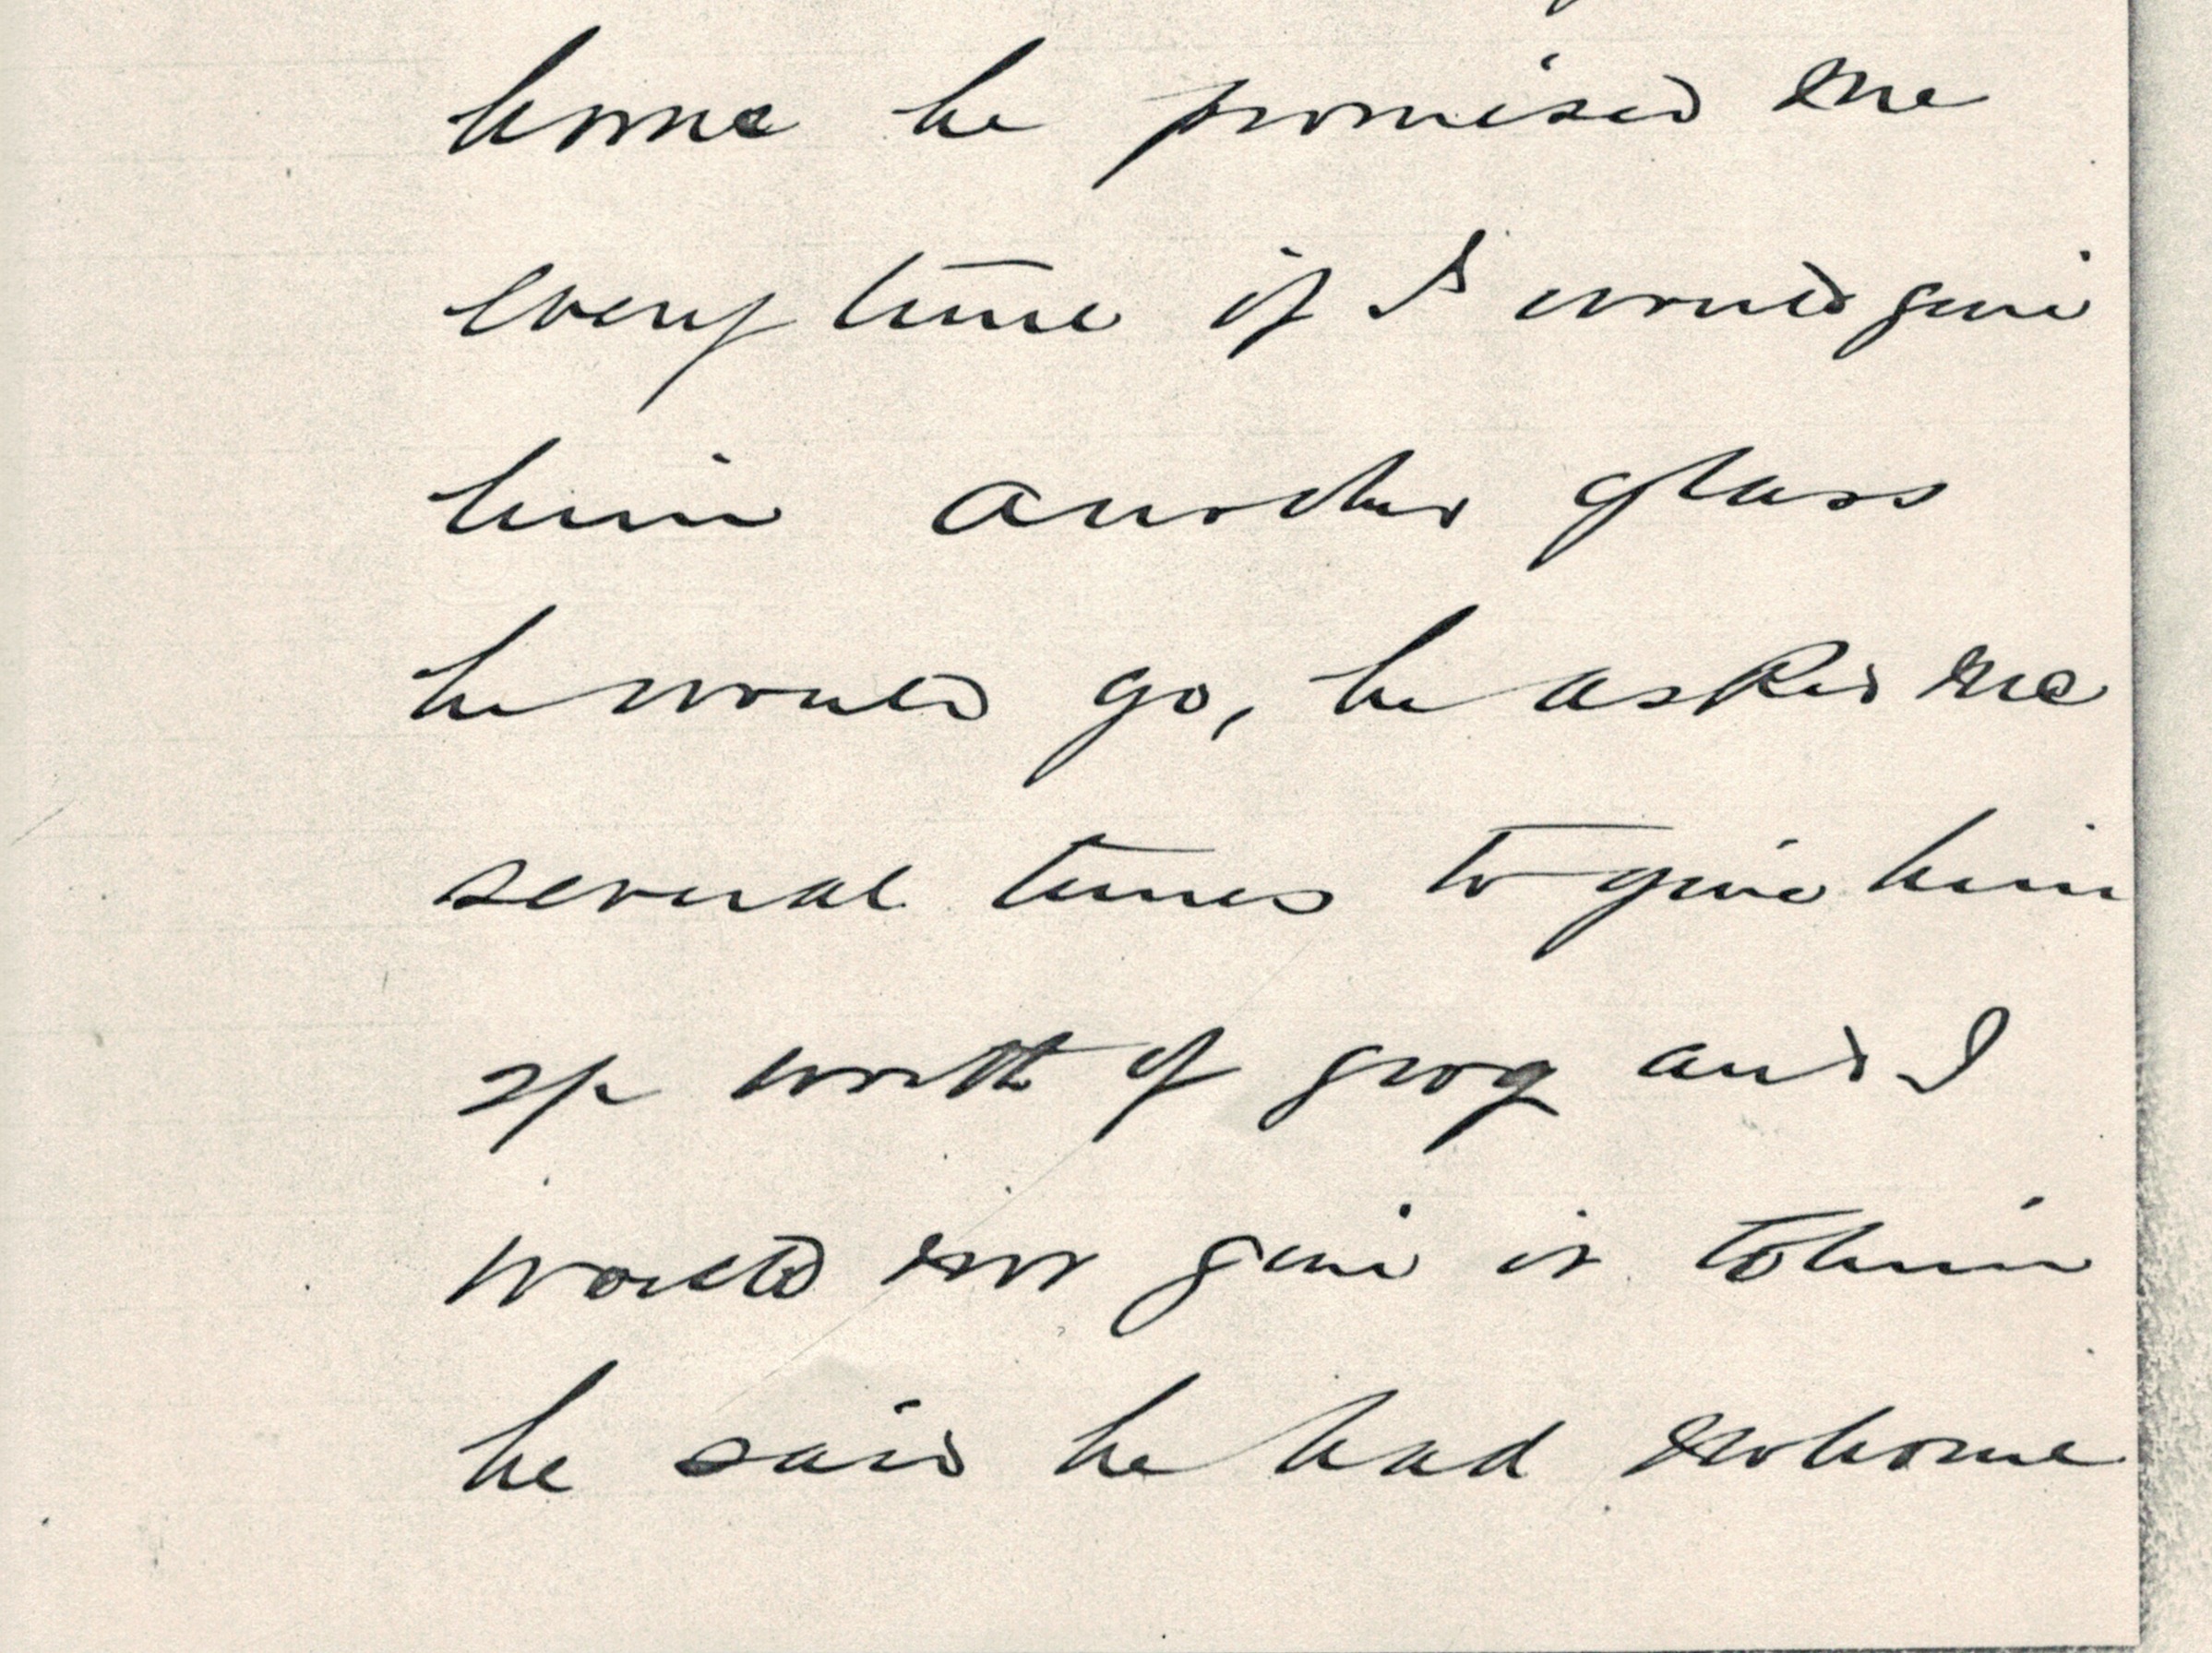 home he promised me
every time if I would give
him another glass
he would go, he asked me
several times to give him
worth of grog and I
would not give it to him
he said he had no home